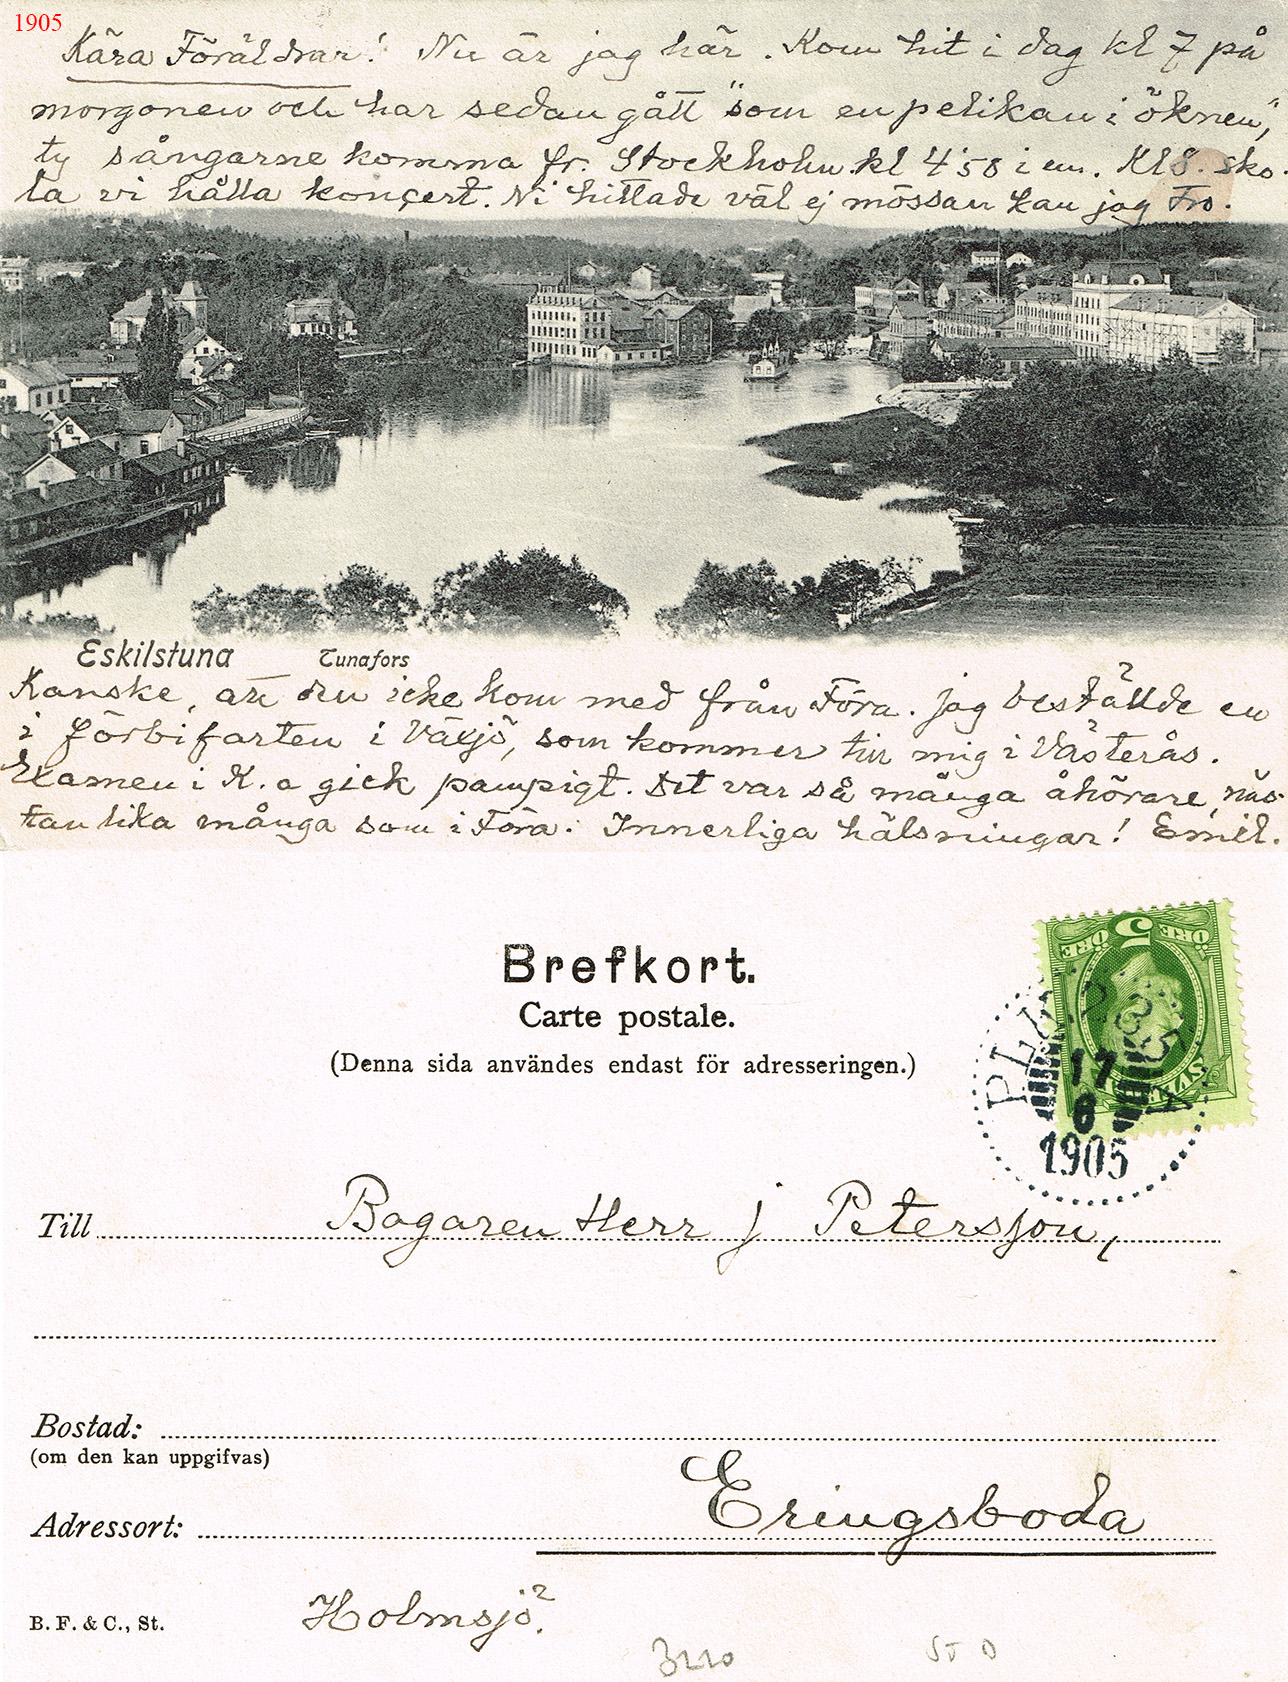 1905
Kära Föräldrar! Nu är jag här. Kom hit i dag kl 7 på
morgonen och har sedan gått "som en pelikan i öknen",
ty sångarne komma fr. Stockholm kl 4'58 i em. Kl 8. sko-
la vi hålla konsert. Ni hittade väl ej mössan kan jag tro.
Eskilstuna Tunafors
Kanske, att den icke kom med från Föra. Jag beställde en
i förbifarten i Växjö, som kommer till mig i Västerås.
Examen i K.a gick pampigt. Det var så många åhörare, näs-
tan lika många som i Föra. Innerliga hälsningar! Emil.
Brefkort.
Carte postale.
(Denna sida användes endast för adresseringen.)
5
ÖRE ÖRE
PLK
17
6
1905
Till Bagaren Herr J Petersson,
Bostad:
(om den kan uppgifvas)
Adressort: Eringsboda
B. F. & C., St.
Holmsjö.